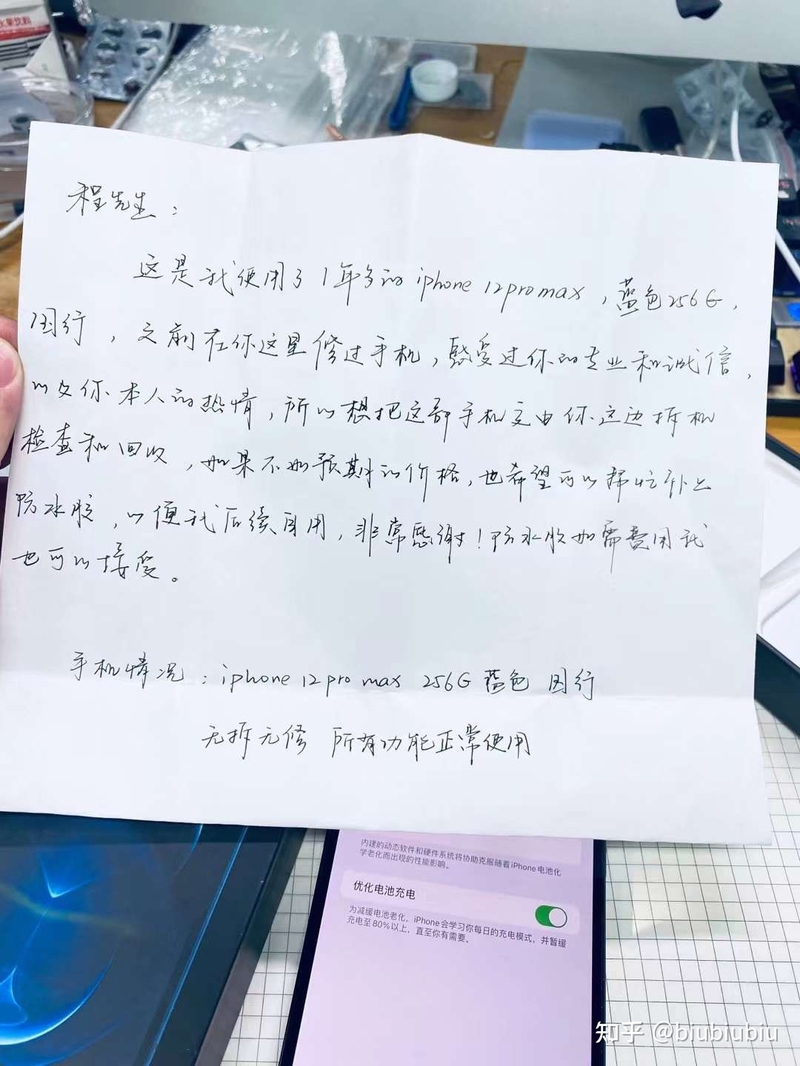 果饮料
程先生：
这是我使用了1年多的iphone 12promax，蓝色256G，
国行，之前在你这里修过手机，感受过你的专业和诚信，
以及你本人的热情，所以想把这部手机交由你这边拆机
检查和回收，如果不如预期的价格，也希望可以帮忙补上
防水胶，以便我后续自用，非常感谢！防水胶如需费用我
也可以接受。
手机情况：iphone 12pro max 256G 蓝色 国行
无拆无修 所有功能正常使用
内建的动态软件和硬件系统将协助克服随着iPhone电池化
学老化而出现的性能影响。
优化电池充电
为减缓电池老化，iPhone会学习你每日的充电模式，并暂缓
充电至80%以上，直至你有需要。
知乎 @biubiubiu